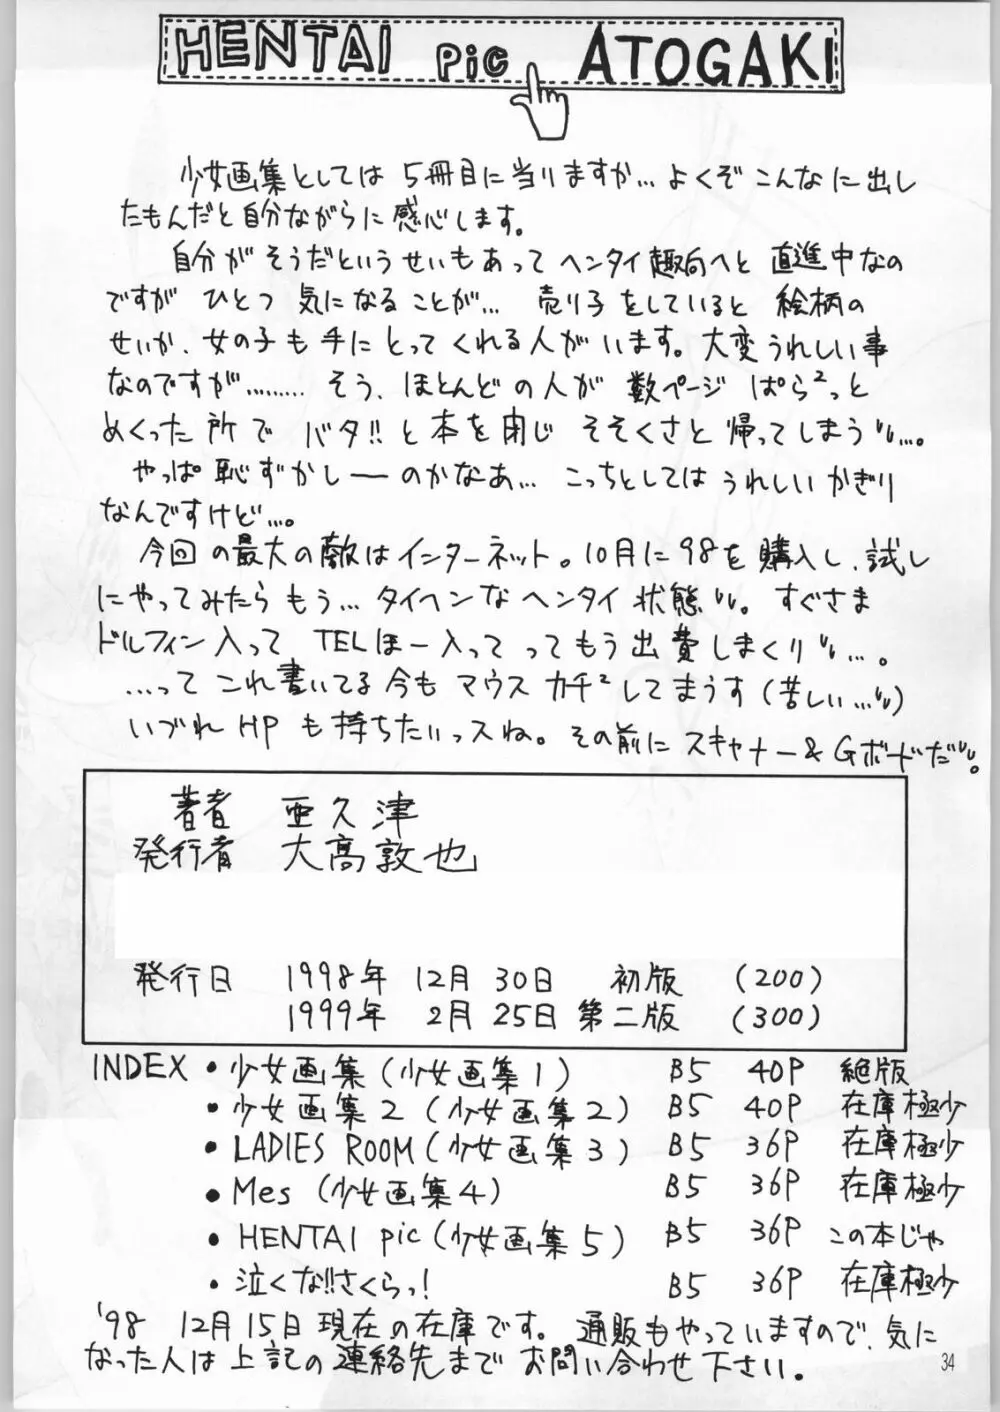 HENTAI Pic ATOGAKI
少女画集としては5冊目に当りますか…よくぞこんなに出し
たもんだと自分ながらに感心します。
自分がそうだというせいもあってヘンタイ趣向へと直進中なの
ですが ひとつ 気になることが… 売り子をしていると 絵柄の
せいか、女の子も手にとってくれる人がいます。大変うれしい事
なのですが……… そう、ほとんどの人が 数ページ ぱら²っと
めくった所で バタ!!と本を閉じ そそくさと帰ってしまう…。
やっぱ恥ずかしーのかなあ… こっちとしてはうれしいかぎり
なんですけど…。
今回の最大の敵はインターネット。10月に98を購入し、試し
にやってみたらもう…タイヘンなヘンタイ状態。すぐさま
ドルフィン入って TELほー入ってってもう出費しまくり…。
…ってこれ書いてる今もマウスカチ²してまうす(苦しい…)
いづれHPも持ちたいっスね。その前にスキャナー&Gボードだ。
著者 亜久津
発行者 大高敦也
発行日 1998年 12月 30日 初版 (200)
1999年 2月 25日 第二版 (300)
INDEX ・少女画集(少女画集1) B5 40P 絶版
・少女画集2 (少女画集2) B5 40P 在庫極少
・LADIES ROOM(少女画集3) B5 36P 在庫極少
・Mes (少女画集4) B5 36P 在庫極少
・HENTAI pic(少女画集5) B5 36P この本じゃ
・泣くな!!さくらっ! B5 36P 在庫極少
'98 12月15日現在の在庫です。通販もやっていますので、気に
なった人は上記の連絡先までお問い合わせ下さい.
34